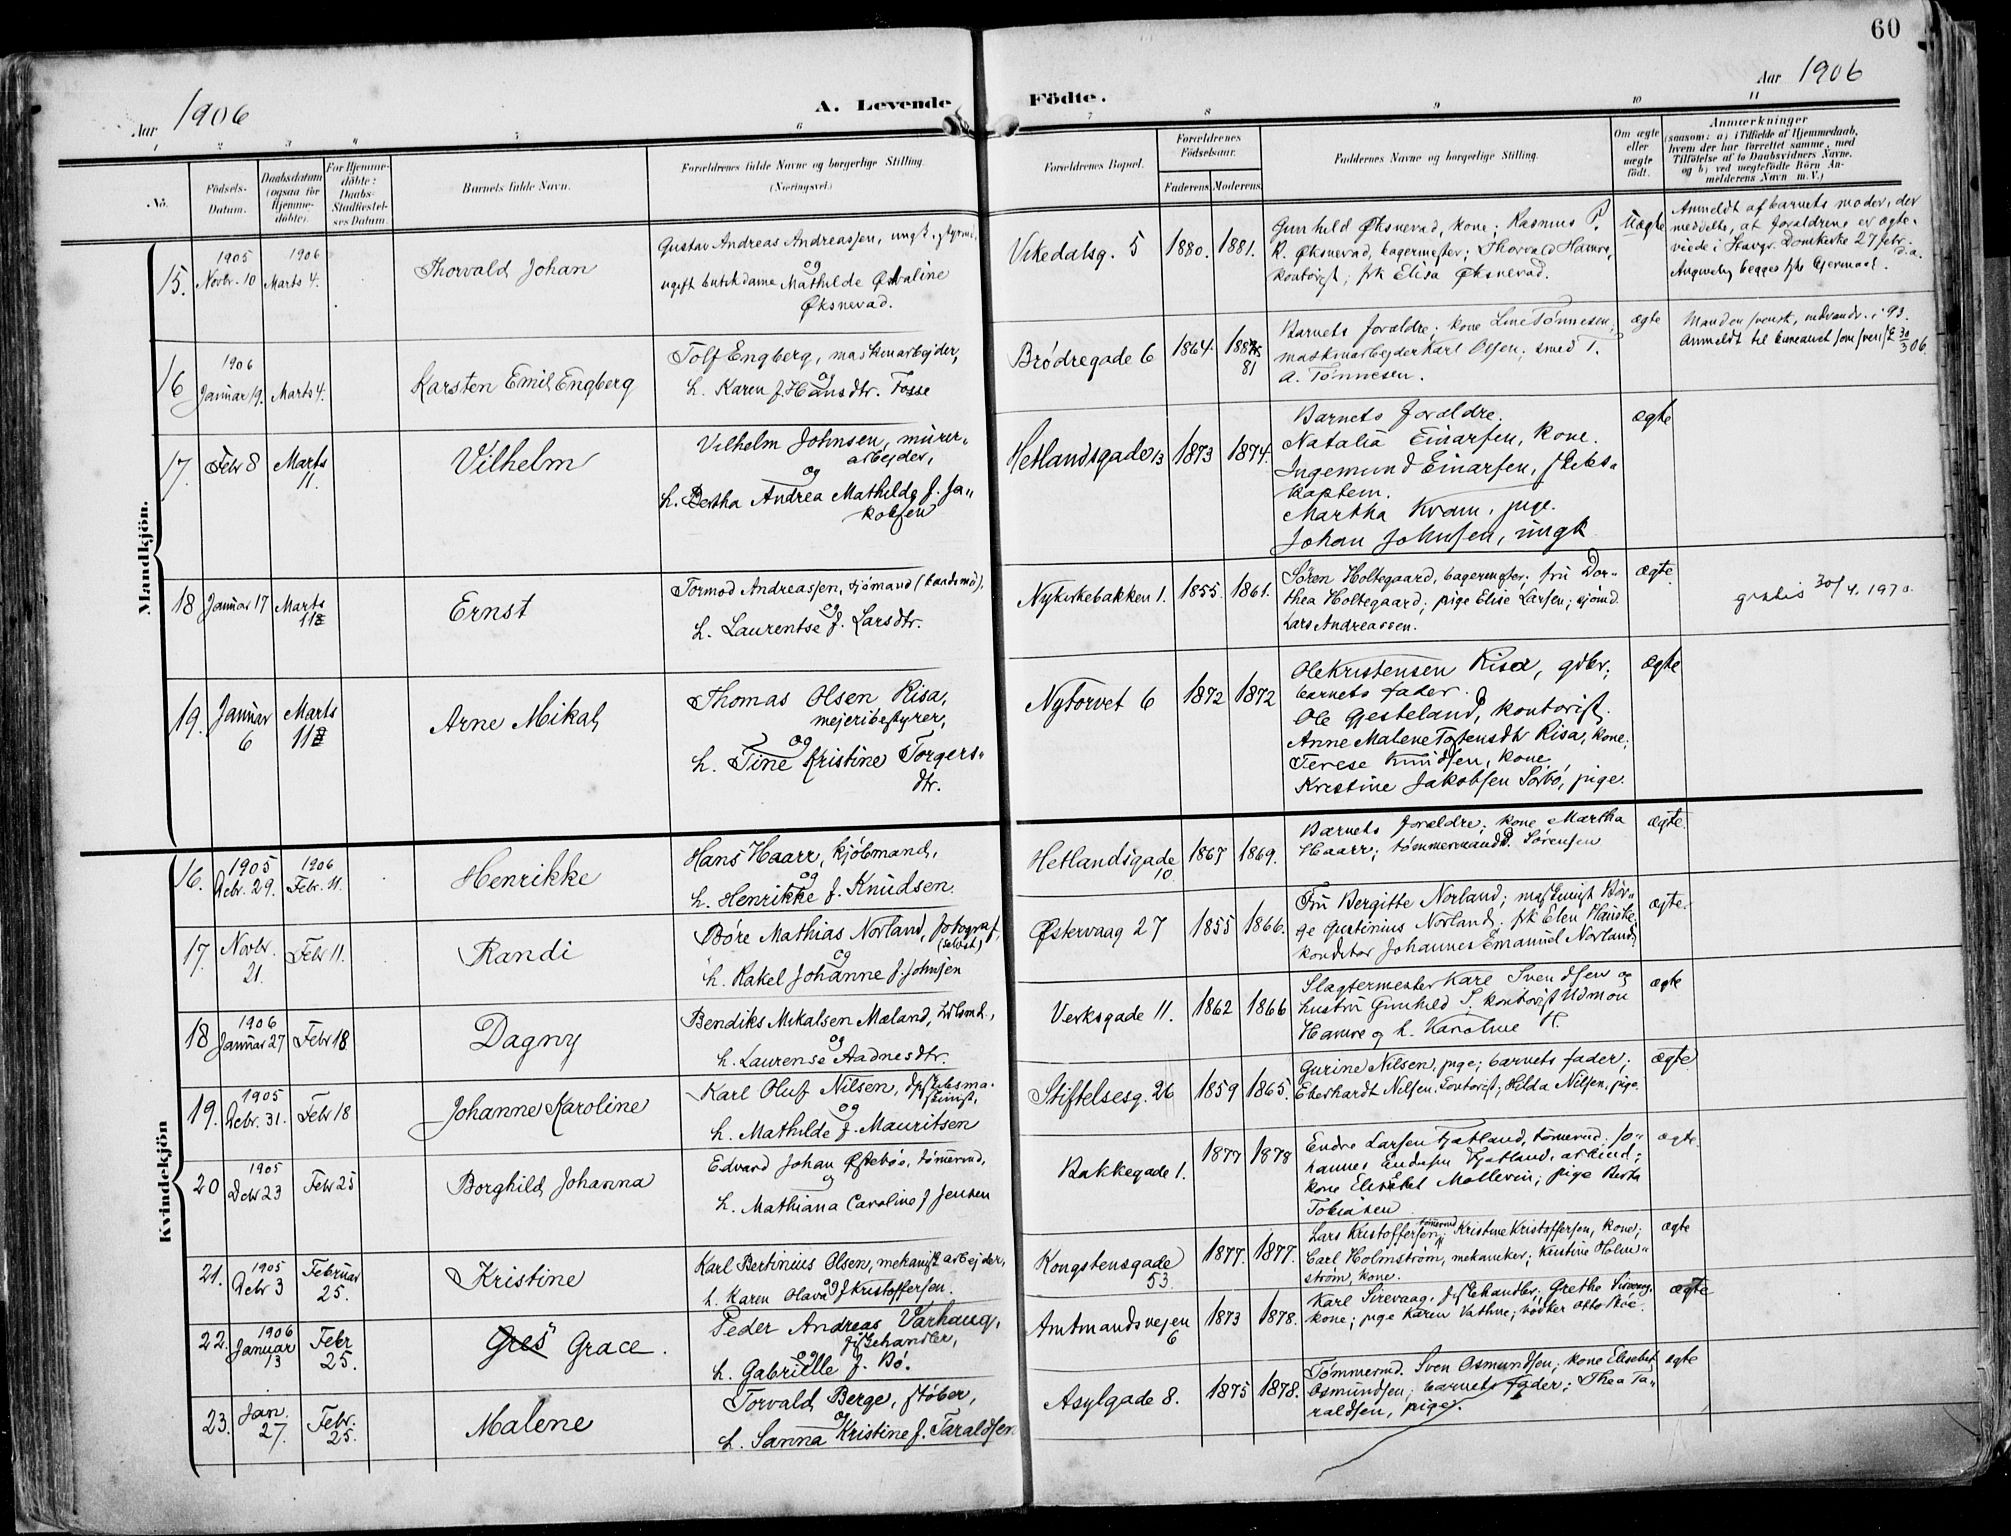 60
Aar 1906
A. Levende
Födte.
Aar 1906
1 2 3 4 5 6 7 8 9 10 11
No.
Födsels-
Datum.
Daabsdatum
(ogsaa for
Hjemme-
döbte).
For Hjemme-
döbte:
Daabs-
Stadfæstel-
ses Datum.
Barnets fulde Navn.
Forældrenes fulde Navne og borgerlige Stilling.
(Næringsvei.)
Forældrenes Bopæl.
Forældrenes
Födselsaar.
Faderens.
Moderens.
Faddernes Navne og borgerlige Stilling.
Om ægte
eller
uægte
födt.
Anmærkninger
(saasom: a) i Tilfælde af Hjemmedaab,
hvem der har forrettet samme, med
Tilföielse af to Daabsvidners Navne.
og b) ved uægtefödte Börn An-
melderens Navn m. V.)
Mandkjön.
15.
1905
Novbr. 10
1906
Marts 4.
Thorvald Johan
Gustav Andreas Andreassen, ungk.
og
ugift butikdame Mathilde
Øksnevad.
Vikedalsg. 5
1880.
1881.
Gunhild Øksnevad, kone; Rasmus P.
R. Øksnevad, bagermester; Thorvald Havre,
kontorist; frk Elisa Øksnevad.
Uægte
Anmeldt af barnets moder, der
meddelte, at forældrene er ægte-
viede i Stavgr. Domkirke 27 febr.
d.a.
16
1906
Januar 19.
Marts 4.
Karsten Emil Engberg
Tolf Engberg, maskinarbejder,
og
h. Karen f. Hansdtr. Fosse
Brödregade 6
1864
81
Barnets forældre; kone Line Tönnesen;
maskinarbejder Karl Olsen; smed T.
A. Tönnesen.
ægte
Manden svensk, indvandr. i 93.
30/3 06.
17.
Febr 8
Marts
11.
Vilhelm
Vilhelm Johnsen, murer-
arbejder,
og
h. Bertha Andrea Mathilde f. Ja-
kobsen
Hetlandsgade 13
1873
1874.
Barnets forældre.
Natalia Einarsen, kone.
Ingemund Einarsen, skibs-
kaptein.
Martha Kvam, pige.
Johan Johnsen, ungk.
ægte
18
Januar 17
Marts
11
Ernst
Tormod Andreassen, sjömand
og
h. Laurentse f. Larsdtr.
Nykirkebakken 1.
1855.
1861.
Sören Holtegaard, bagermester; fru Dor-
thea Holtegaard; pige Elise Larsen; sjömd.
Lars Andreassen.
ægte.
gratis 30/4. 1970.
19.
Januar
6
Marts
11
Arne Mikal
Thomas Olsen Risa,
mejeribestyrer,
og
h. Tine Kristine Torgers-
dtr.
Nytorvet 6
1872
1872
Ole Kristensen Risa, gdbr;
barnets fader.
Ole Gjesteland, kontorist.
Anne Malene Tostensdtr Risa, kone;
Terese Knudsen, kone,
Kristine Jakobsen Sörbö, pige.
ægte
Kvindekjön
16.
1905
Debr. 29.
1906
Febr. 11.
Henrikke
Hans Haarr, kjöbmand,
og
h. Henrikke f. Knudsen
Hetlandsgade
10.
1867
1869.
Barnets forældre; kone Martha
Haarr; Sörensen
ægte.
17.
Novbr.
21.
Febr 11.
Randi
Böre Mathias Norland, fotograf,
og
h. Rakel Johanne f. Johnsen
Østervaag 27
1855
1866.
Fru Bergitte Norland; maskinist Bör-
ge Gustinius Norland; frk Elen Hauske;
konditor Johannes Emanuel Norland
ægte.
18
1906
Januar 27
Febr 18.
Dagny
Bendiks Mikalsen Mæland,
og
h. Laurense Aadnesdtr.
Verksgade 11.
1862
1866
Slagtermester Karl Svendsen og
hustru Gunhild S, kontorist Udmon
Havre og h. Karoline H.
ægte
19.
1905
Debr. 31.
Febr 18
Johanne Karoline
Karl Oluf Nilsen, dpskibsma-
skinist,
og
h. Mathilde f. Mauritsen
Stiftelsesg. 26
1859
1865.
Gurine Nilsen, pige; barnets fader;
Eberhardt Nilsen, kontorist; Hilda Nilsen, pige.
ægte
20
1905
Debr 23
Febr 25
Borghild Johanna
Edvard Johan Østebö, tömrmd,
og
h. Mathiana Caroline f Jensen
Bakkegade 1.
1877
1878
Endre Larsen Tjatland, tömrmd; Jo-
hannes Endresen Tjatland, arbind;
kone Elisabet Mollevin; pige Berta
Tobiasen
ægte
21.
1905
Debr 3
Februar
25.
Kristine
Karl Bertinius Olsen, mekanisk arbejder,
og
h. Karen Olava f Kristoffersen.
Kongstensgade
53.
1877.
1877.
Lars Kristoffersen, tömrmd; Kristine Kristoffersen, kone;
Carl Holmström, mekaniker; Kristine Holm-
ström, kone.
ægte
22.
1906
Januar
13
Febr
25.
Gres Grace.
Peder Andreas Varhaug,
fiskehandler,
og
h. Gabrielle f. Bö.
Amtmandsvejen
6
1873
1878.
Karl Sirevaag, fiskehandler; Grethe Sirevaag,
kone; pige Karen Vathne; bödker Otto Böe.
ægte
23.
Jan.
27.
Febr.
25.
Malene
Torvald Berge, stöber,
og
h. Sanna Kristine f. Taraldsen
Asylgade 8.
1875
1878.
Tömmermd. Sven Osmundsen; kone Elisabet
Osmundsen; barnets fader; Thea Ta-
raldsen, pige.
ægte